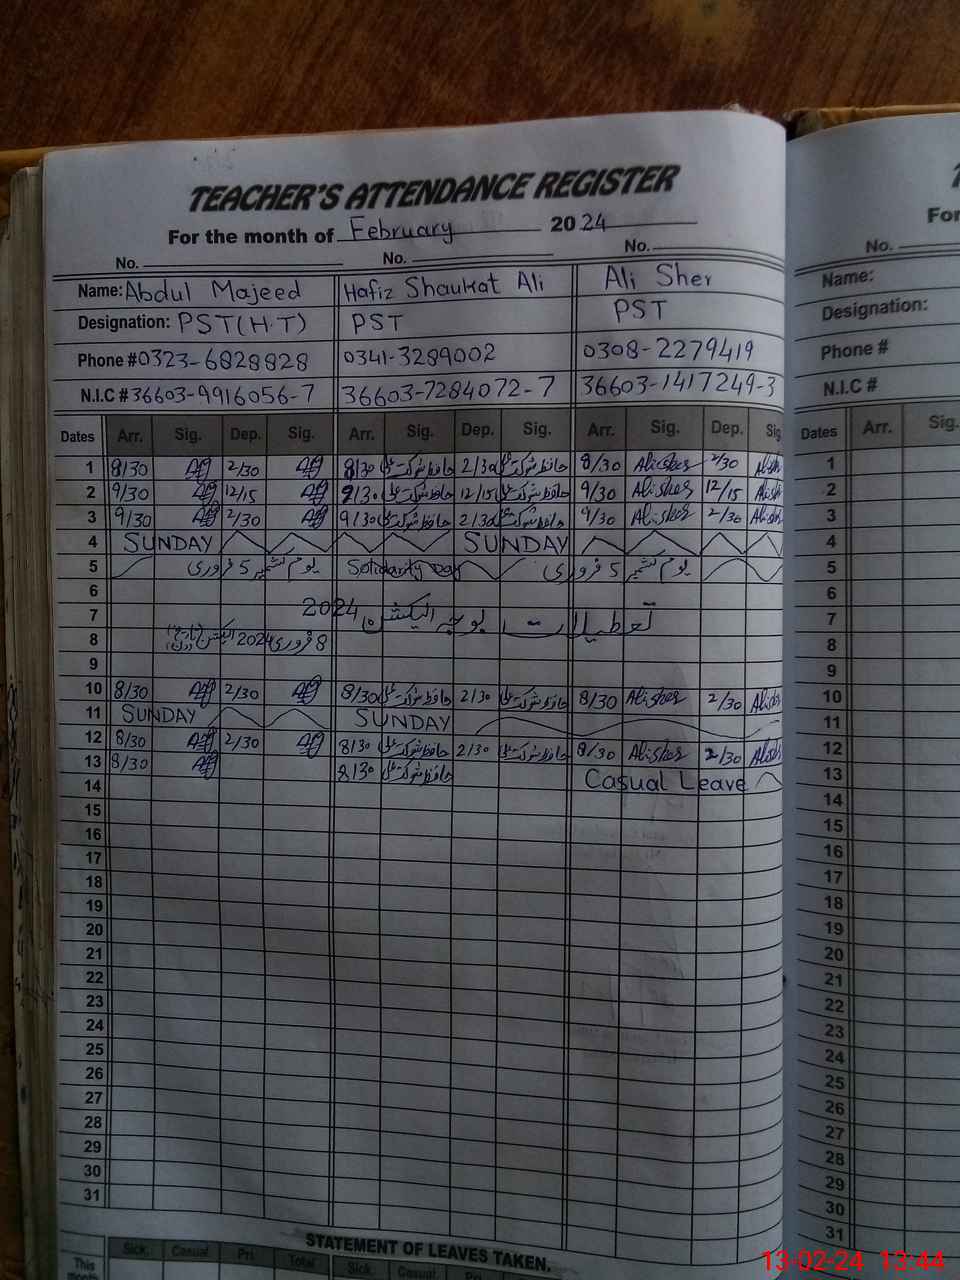 TEACHER'S ATTENDANCE REGISTER
For the month of February 2024
No. No. No.
Name: Abdul Majeed Hafiz Shaukat Ali Ali Sher
Designation: PST(H.T) PST PST
Phone # 0323-6828828 0341-3289002 0308-2279419
N.I.C # 36603-9916056-7 36603-7284072-7 36603-1417249-3
Dates Arr. Sig. Dep. Sig. Arr. Sig. Dep. Sig. Arr. Sig. Dep. Sig
1 8/30 2/30 8/30 حافظ شوکت علی 2/30 حافظ شوکت علی 8/30 Alisher 2/30
2 9/30 12/15 9/30 حافظ شوکت علی 12/15 حافظ شوکت علی 9/30 Alisher 12/15
3 9/30 2/30 9/30 حافظ شوکت علی 2/30 حافظ شوکت علی 9/30 Alisher 2/30
4 SUNDAY SUNDAY
5 یوم کشمیر 5 فروری Solidarity Day یوم کشمیر 5 فروری
6
7 تعطیلات بوجہ الیکشن 2024
8 8 فروری 2024 الیکشن
9
10 8/30 2/30 8/30 حافظ شوکت علی 2/30 حافظ شوکت علی 8/30 Alisher 2/30
11 SUNDAY SUNDAY
12 8/30 2/30 8/30 حافظ شوکت علی 2/30 حافظ شوکت علی 8/30 Alisher 2/30
13 8/30 8/30 حافظ شوکت علی Casual Leave
14
15
16
17
18
19
20
21
22
23
24
25
26
27
28
29
30
31
STATEMENT OF LEAVES TAKEN.
This month Sick. Casual Pri. Total Sick. Casual. Pri.
For
No.
Name:
Designation:
Phone #
N.I.C #
Dates Arr. Sig.
1
2
3
4
5
6
7
8
9
10
11
12
13
14
15
16
17
18
19
20
21
22
23
24
25
26
27
28
29
30
31
13-02-24 13:44